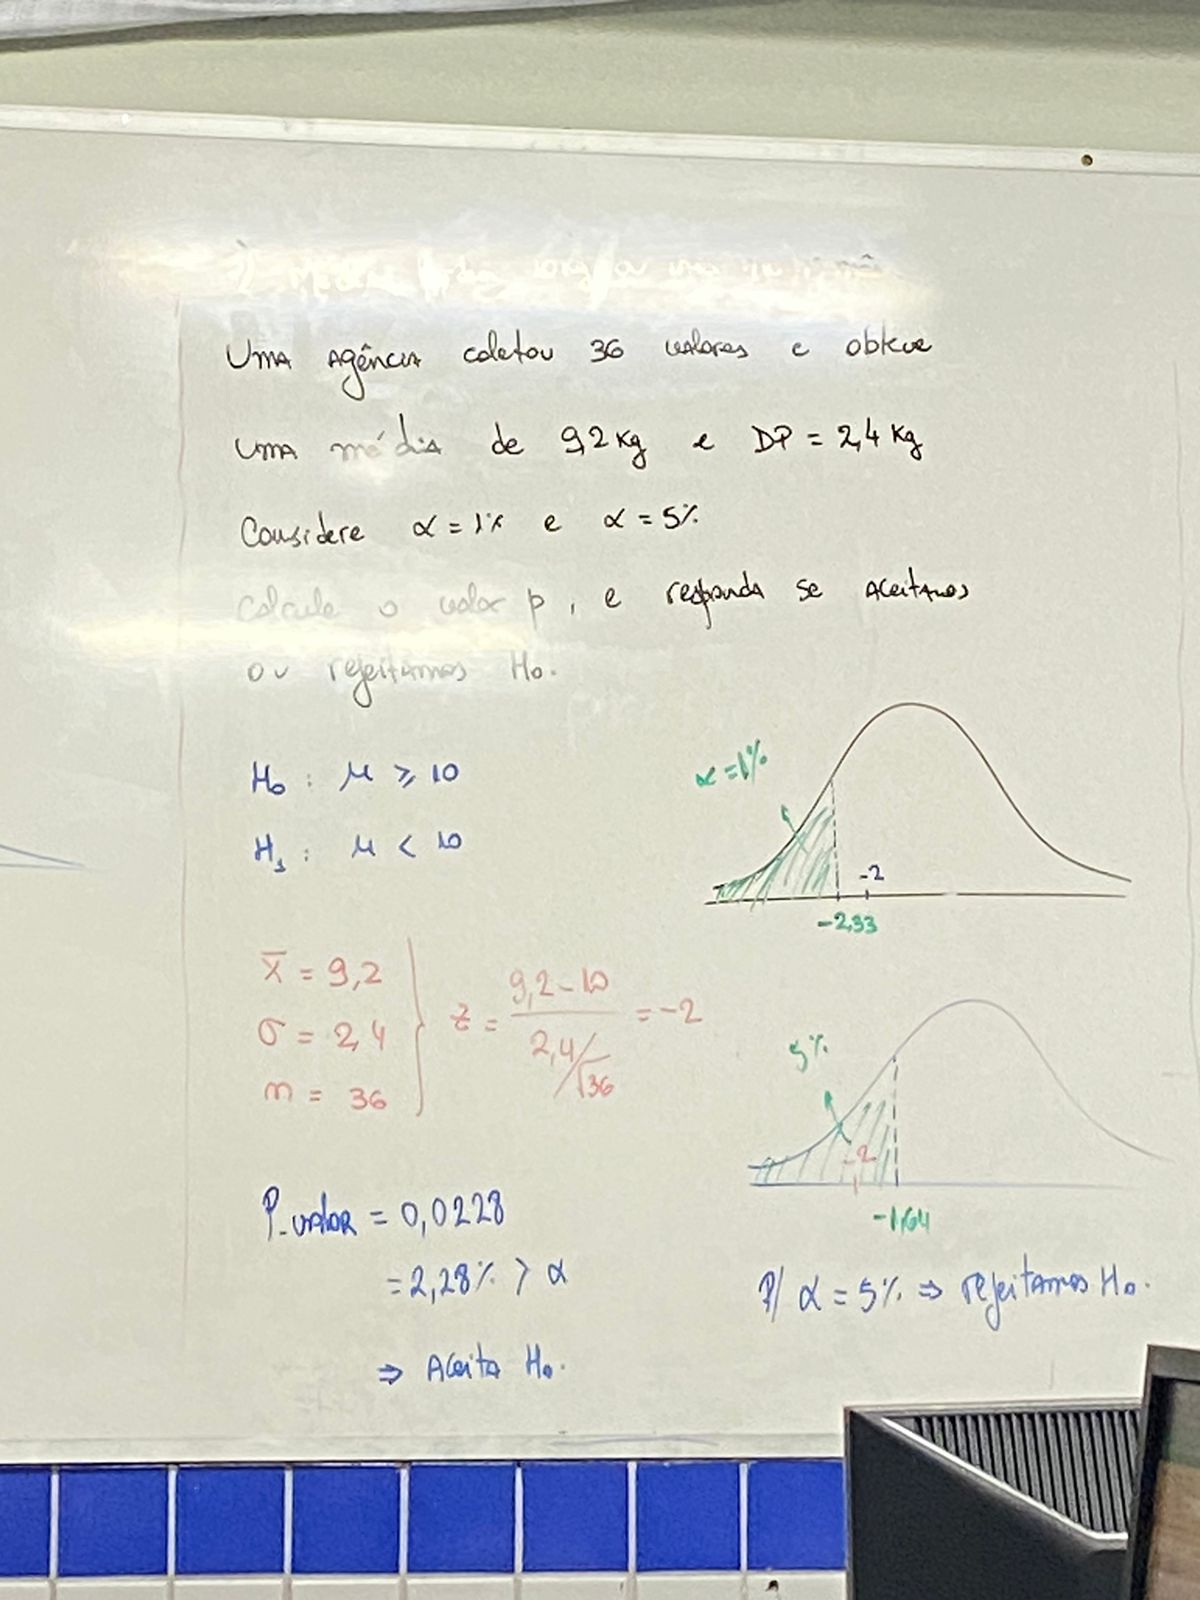 Uma Agência coletou 36 valores e obteve
uma média de 9,2 Kg e DP = 2,4 Kg
Considere α = 1% e α = 5%
calcule o valor p, e responda se aceitamos
ou rejeitamos H₀.
H₀ : μ ≥ 10
H₁ : μ < 10
α = 1%
-2
-2,33
x̄ = 9,2
σ = 2,4
n = 36
z = (9,2 - 10) / (2,4/√36) = -2
5%
-2
-1,64
P-valor = 0,0228
= 2,28% > α
⇒ Aceita H₀.
P/ α = 5% ⇒ rejeitamos H₀.